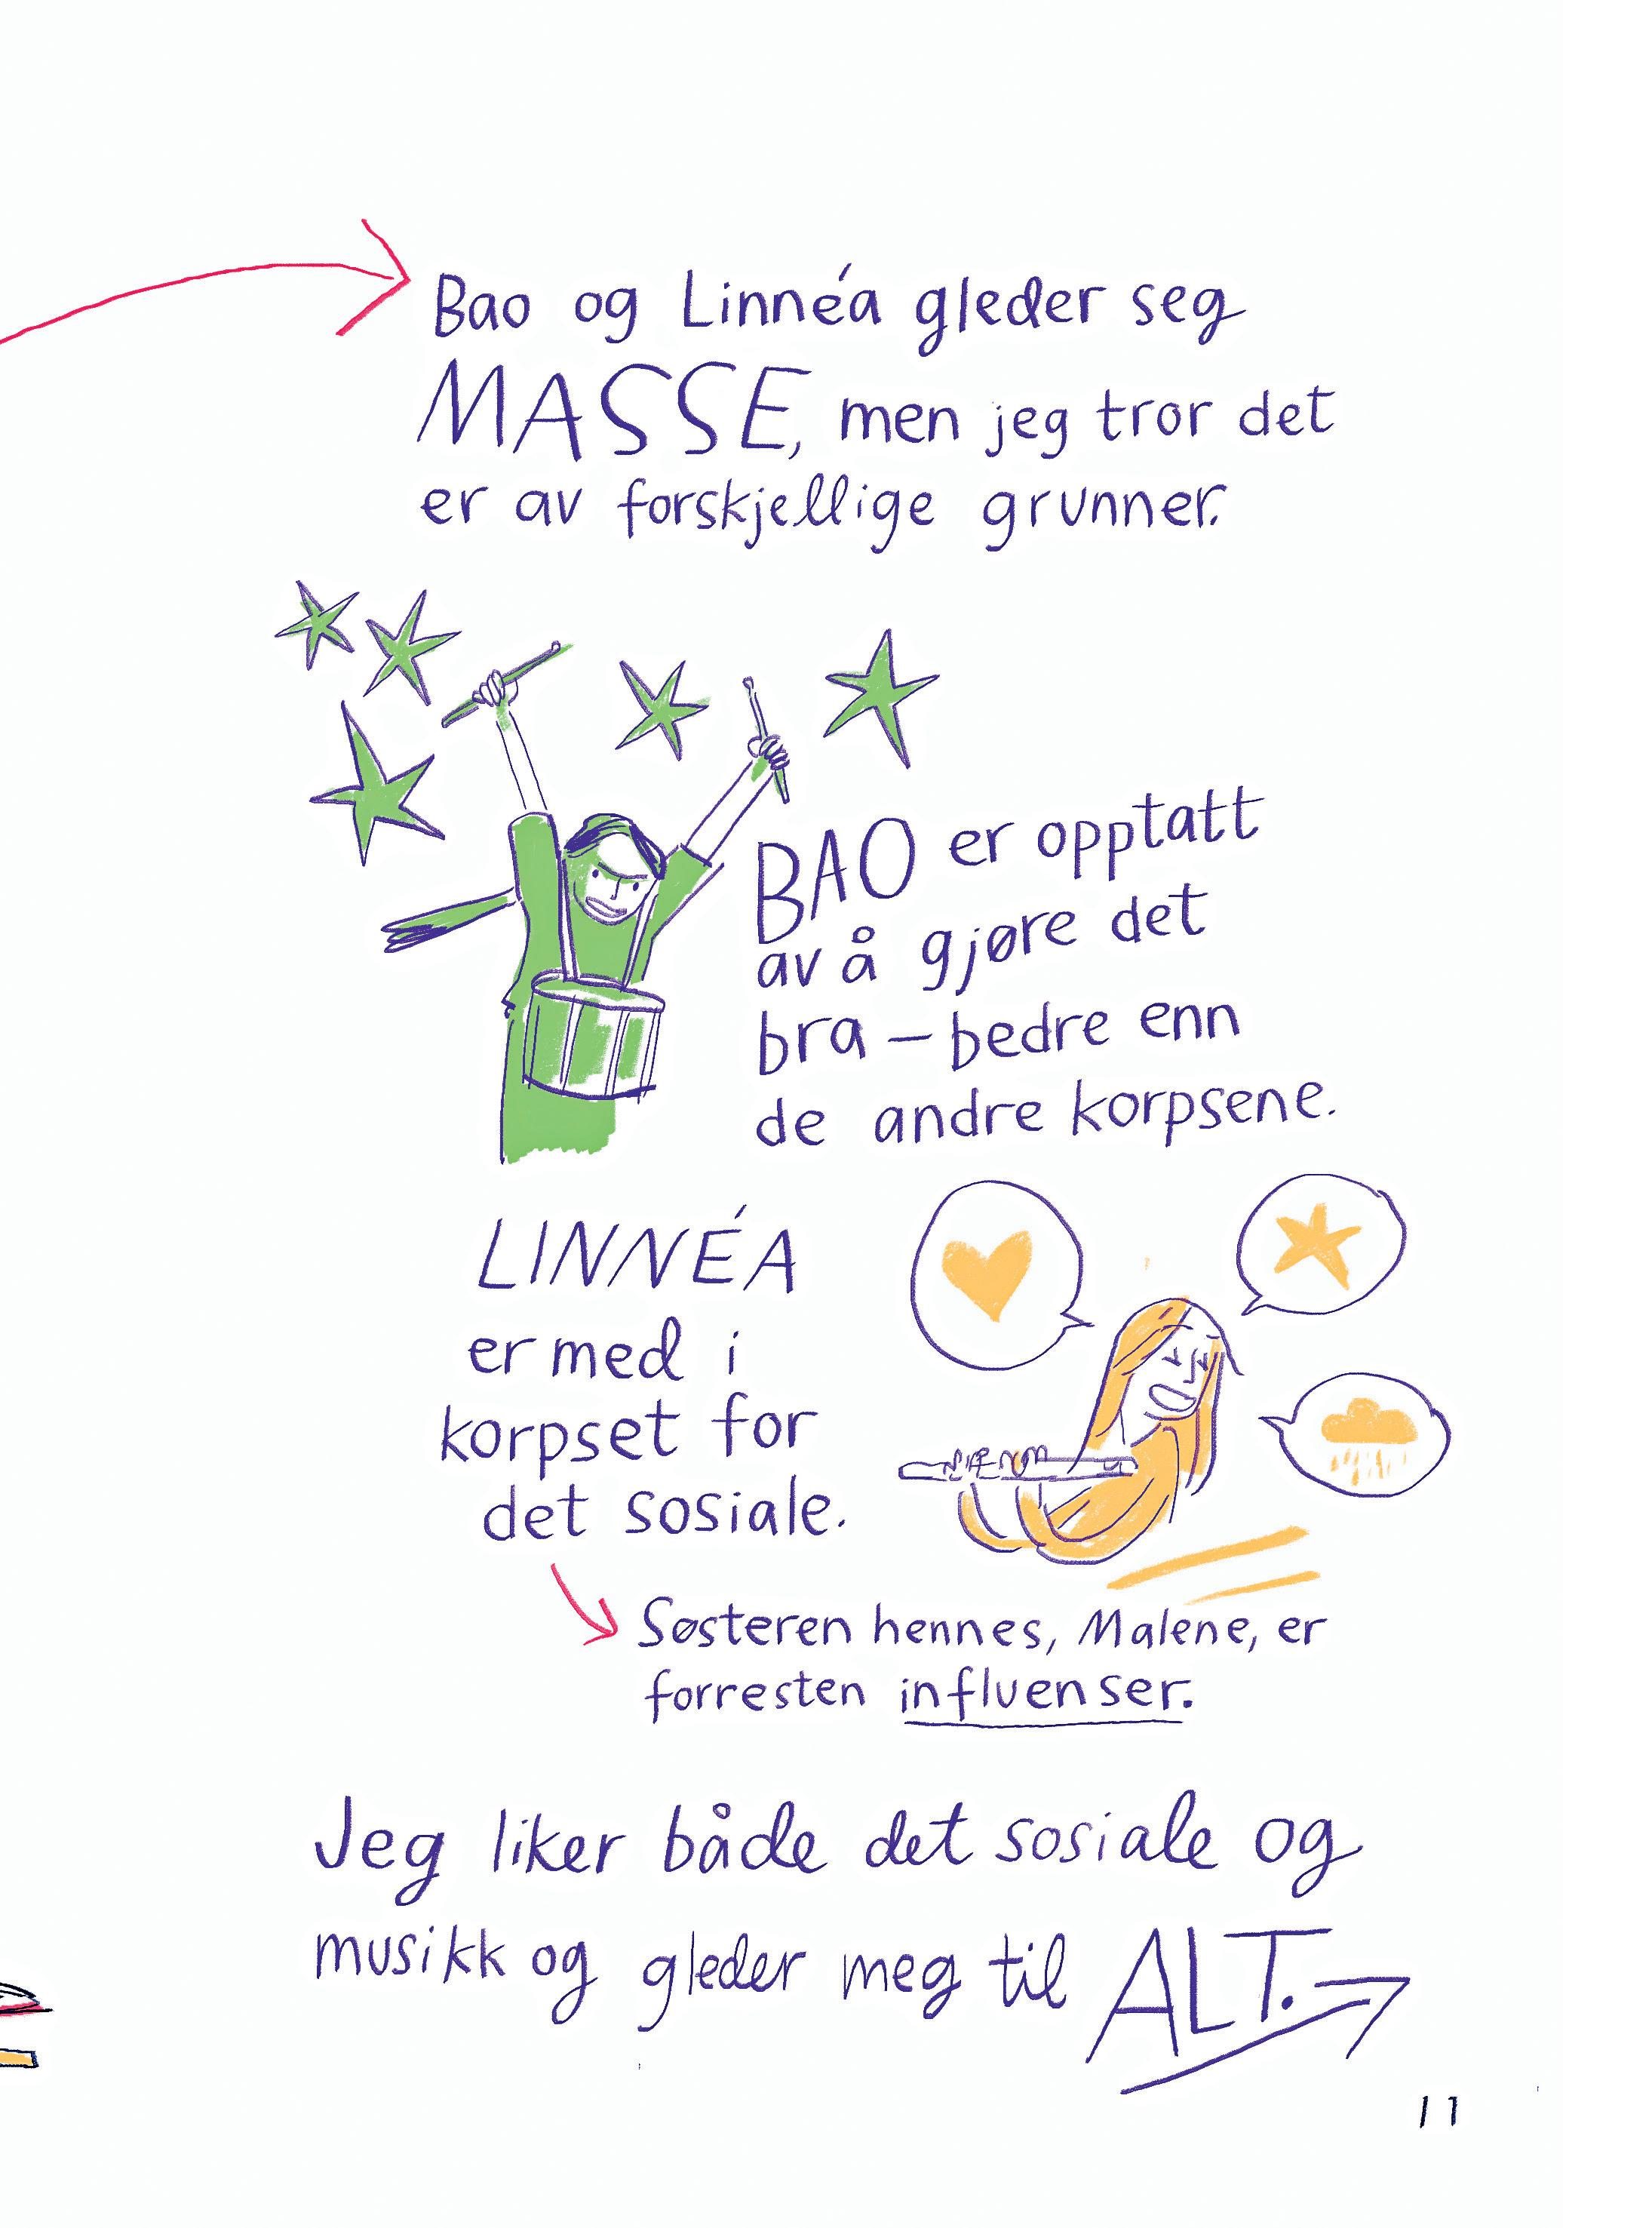 Bao og Linnéa gleder seg
MASSE, men jeg tror det
er av forskjellige grunner.
BAO er opptatt
av å gjøre det
bra – bedre enn
de andre korpsene.
LINNÉA
er med i
korpset for
det sosiale.
Søsteren hennes, Malene, er
forresten influenser.
Jeg liker både det sosiale og
musikk og gleder meg til ALT.
11